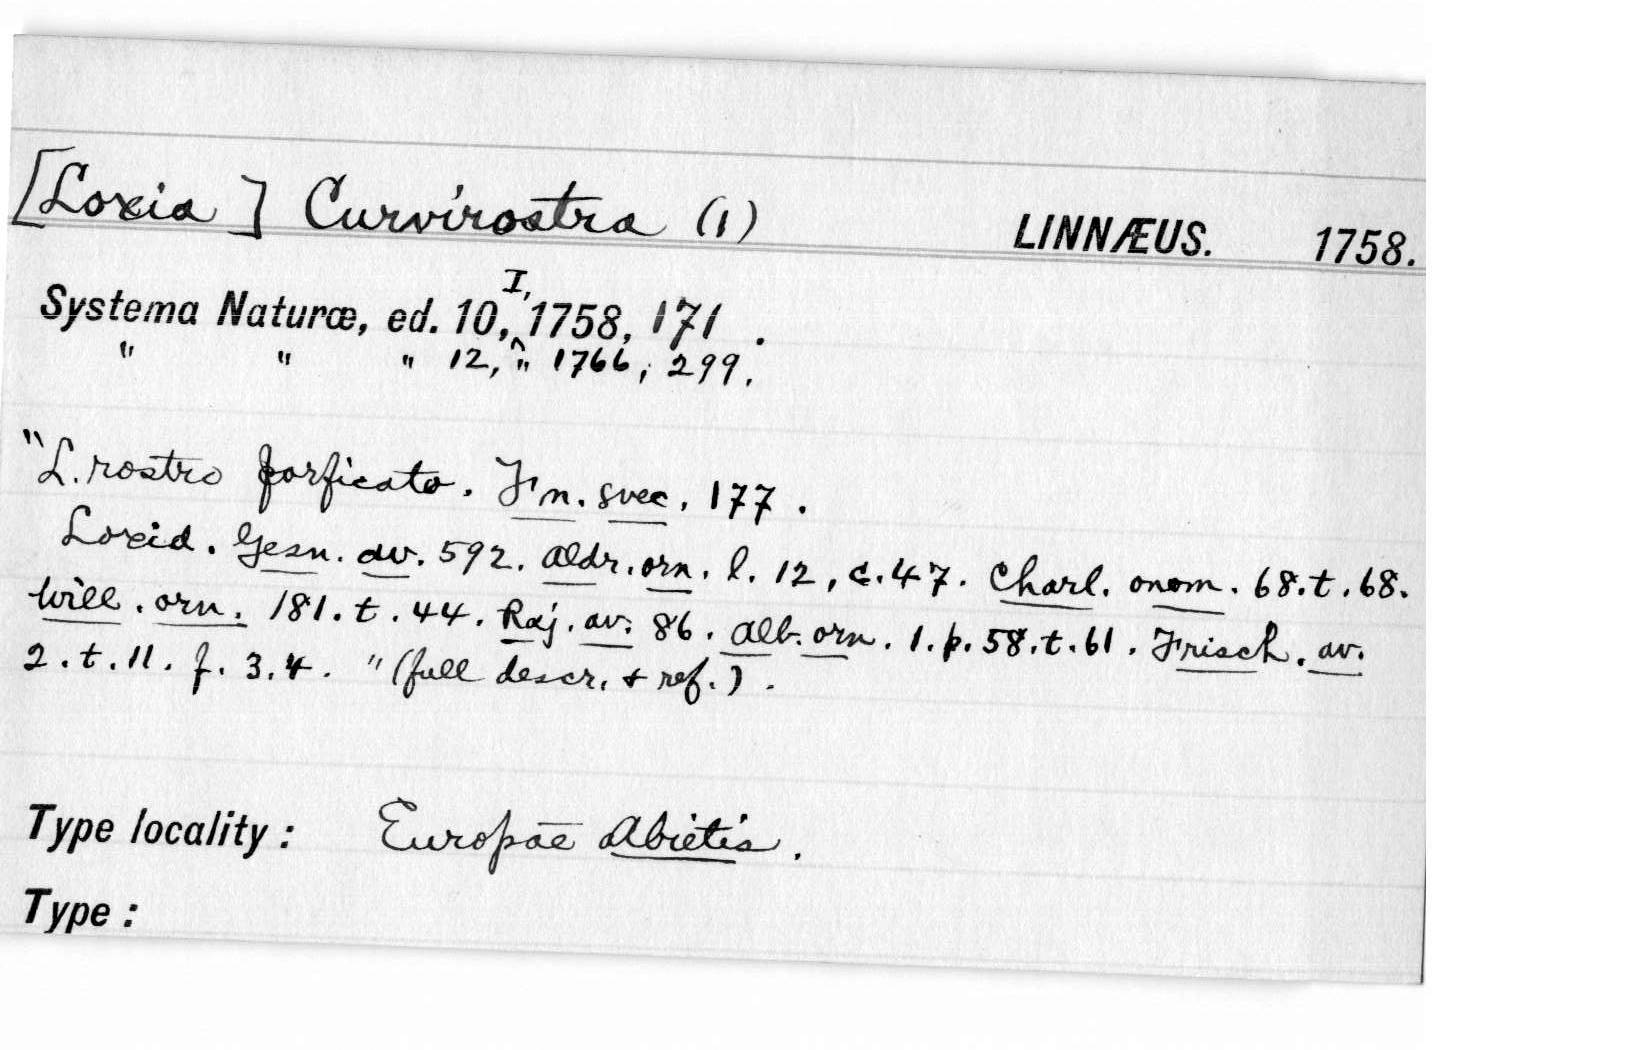 [Loxia] Curvirostra (1) LINNÆUS. 1758.
Systema Naturæ, ed. 10, I, 1758, 171.
" " " 12, " 1766, 299.
"L. rostro forficato. Fn. svec. 177.
Loxia. Gesn. av. 592. Aldr. orn. l. 12, c. 47. Charl. onom. 68. t. 68.
Will. orn. 181. t. 44. Raj. av. 86. Alb. orn. 1. p. 58. t. 61. Frisch. av.
2. t. 11. f. 3. 4. " (full descr. & ref.).
Type locality: Europæ Abietis.
Type: